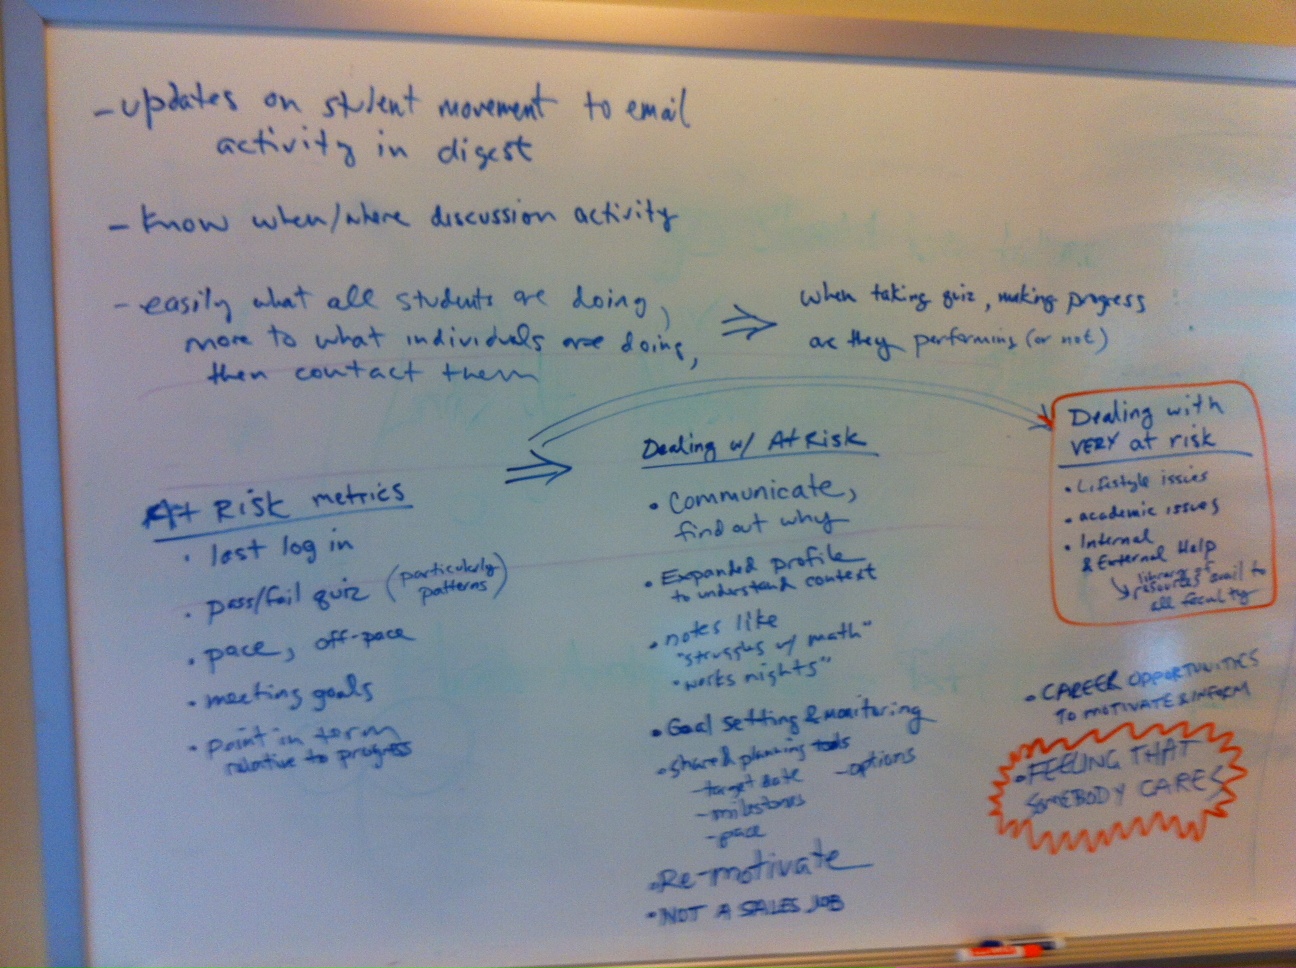 - updates on student movement to email
activity in digest
- know when/where discussion activity
- easily what all students are doing,
more to what individuals are doing,
then contact them
⇒ when taking quiz, making progress
are they performing (or not)
At Risk metrics
• last log in
• pass/fail quiz (particularly
patterns)
• pace, off-pace
• meeting goals
• point in term
relative to progress
⇒
Dealing w/ At Risk
• Communicate,
find out why
• Expanded profile
to understand context
• notes like
"struggles w/ math"
"works nights"
• Goal setting & monitoring
• shared planning tools
- target date - options
- milestones
- pace
• Re-motivate
• NOT A SALES JOB
Dealing with
VERY at risk
• Lifestyle issues
• academic issues
• Internal
& External Help
↳ library of
resources avail to
all faculty
• CAREER OPPORTUNITIES
TO MOTIVATE & INFORM
• FEELING THAT
SOMEBODY CARES